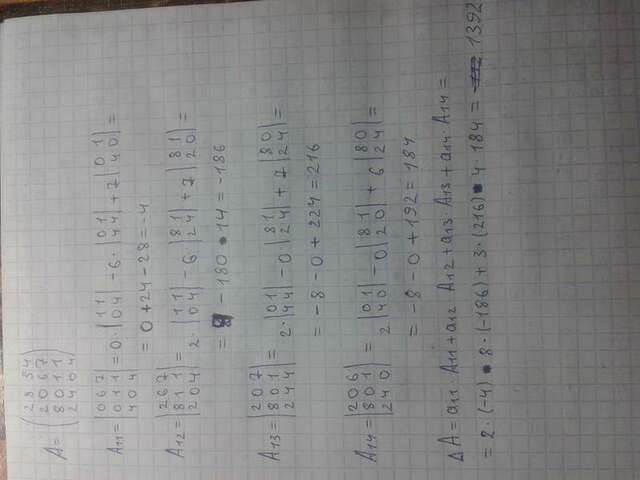 A = ( 2 8 3 4
2 0 6 7
8 0 1 1
2 4 0 4 )
A11 = |0 6 7; 0 1 1; 4 0 4| = 0 · |1 1; 0 4| - 6 · |0 1; 4 4| + 7 |0 1; 4 0| =
= 0 + 24 - 28 = -4
A12 = |2 6 7; 8 1 1; 2 0 4| = 2 · |1 1; 0 4| - 6 |8 1; 2 4| + 7 |8 1; 2 0| =
= 8 - 180 • 14 = -186
A13 = |2 0 7; 8 0 1; 2 4 4| = 2 · |0 1; 4 4| - 0 |8 1; 2 4| + 7 |8 0; 2 4| =
= -8 - 0 + 224 = 216
A14 = |2 0 6; 8 0 1; 2 4 0| = 2 |0 1; 4 0| - 0 |8 1; 2 0| + 6 |8 0; 2 4| =
= -8 - 0 + 192 = 184
ΔA = a11 · A11 + a12 A12 + a13 · A13 + a14 · A14 =
= 2 · (-4) • 8 · (-186) + 3 · (216) • 4 · 184 = 1392